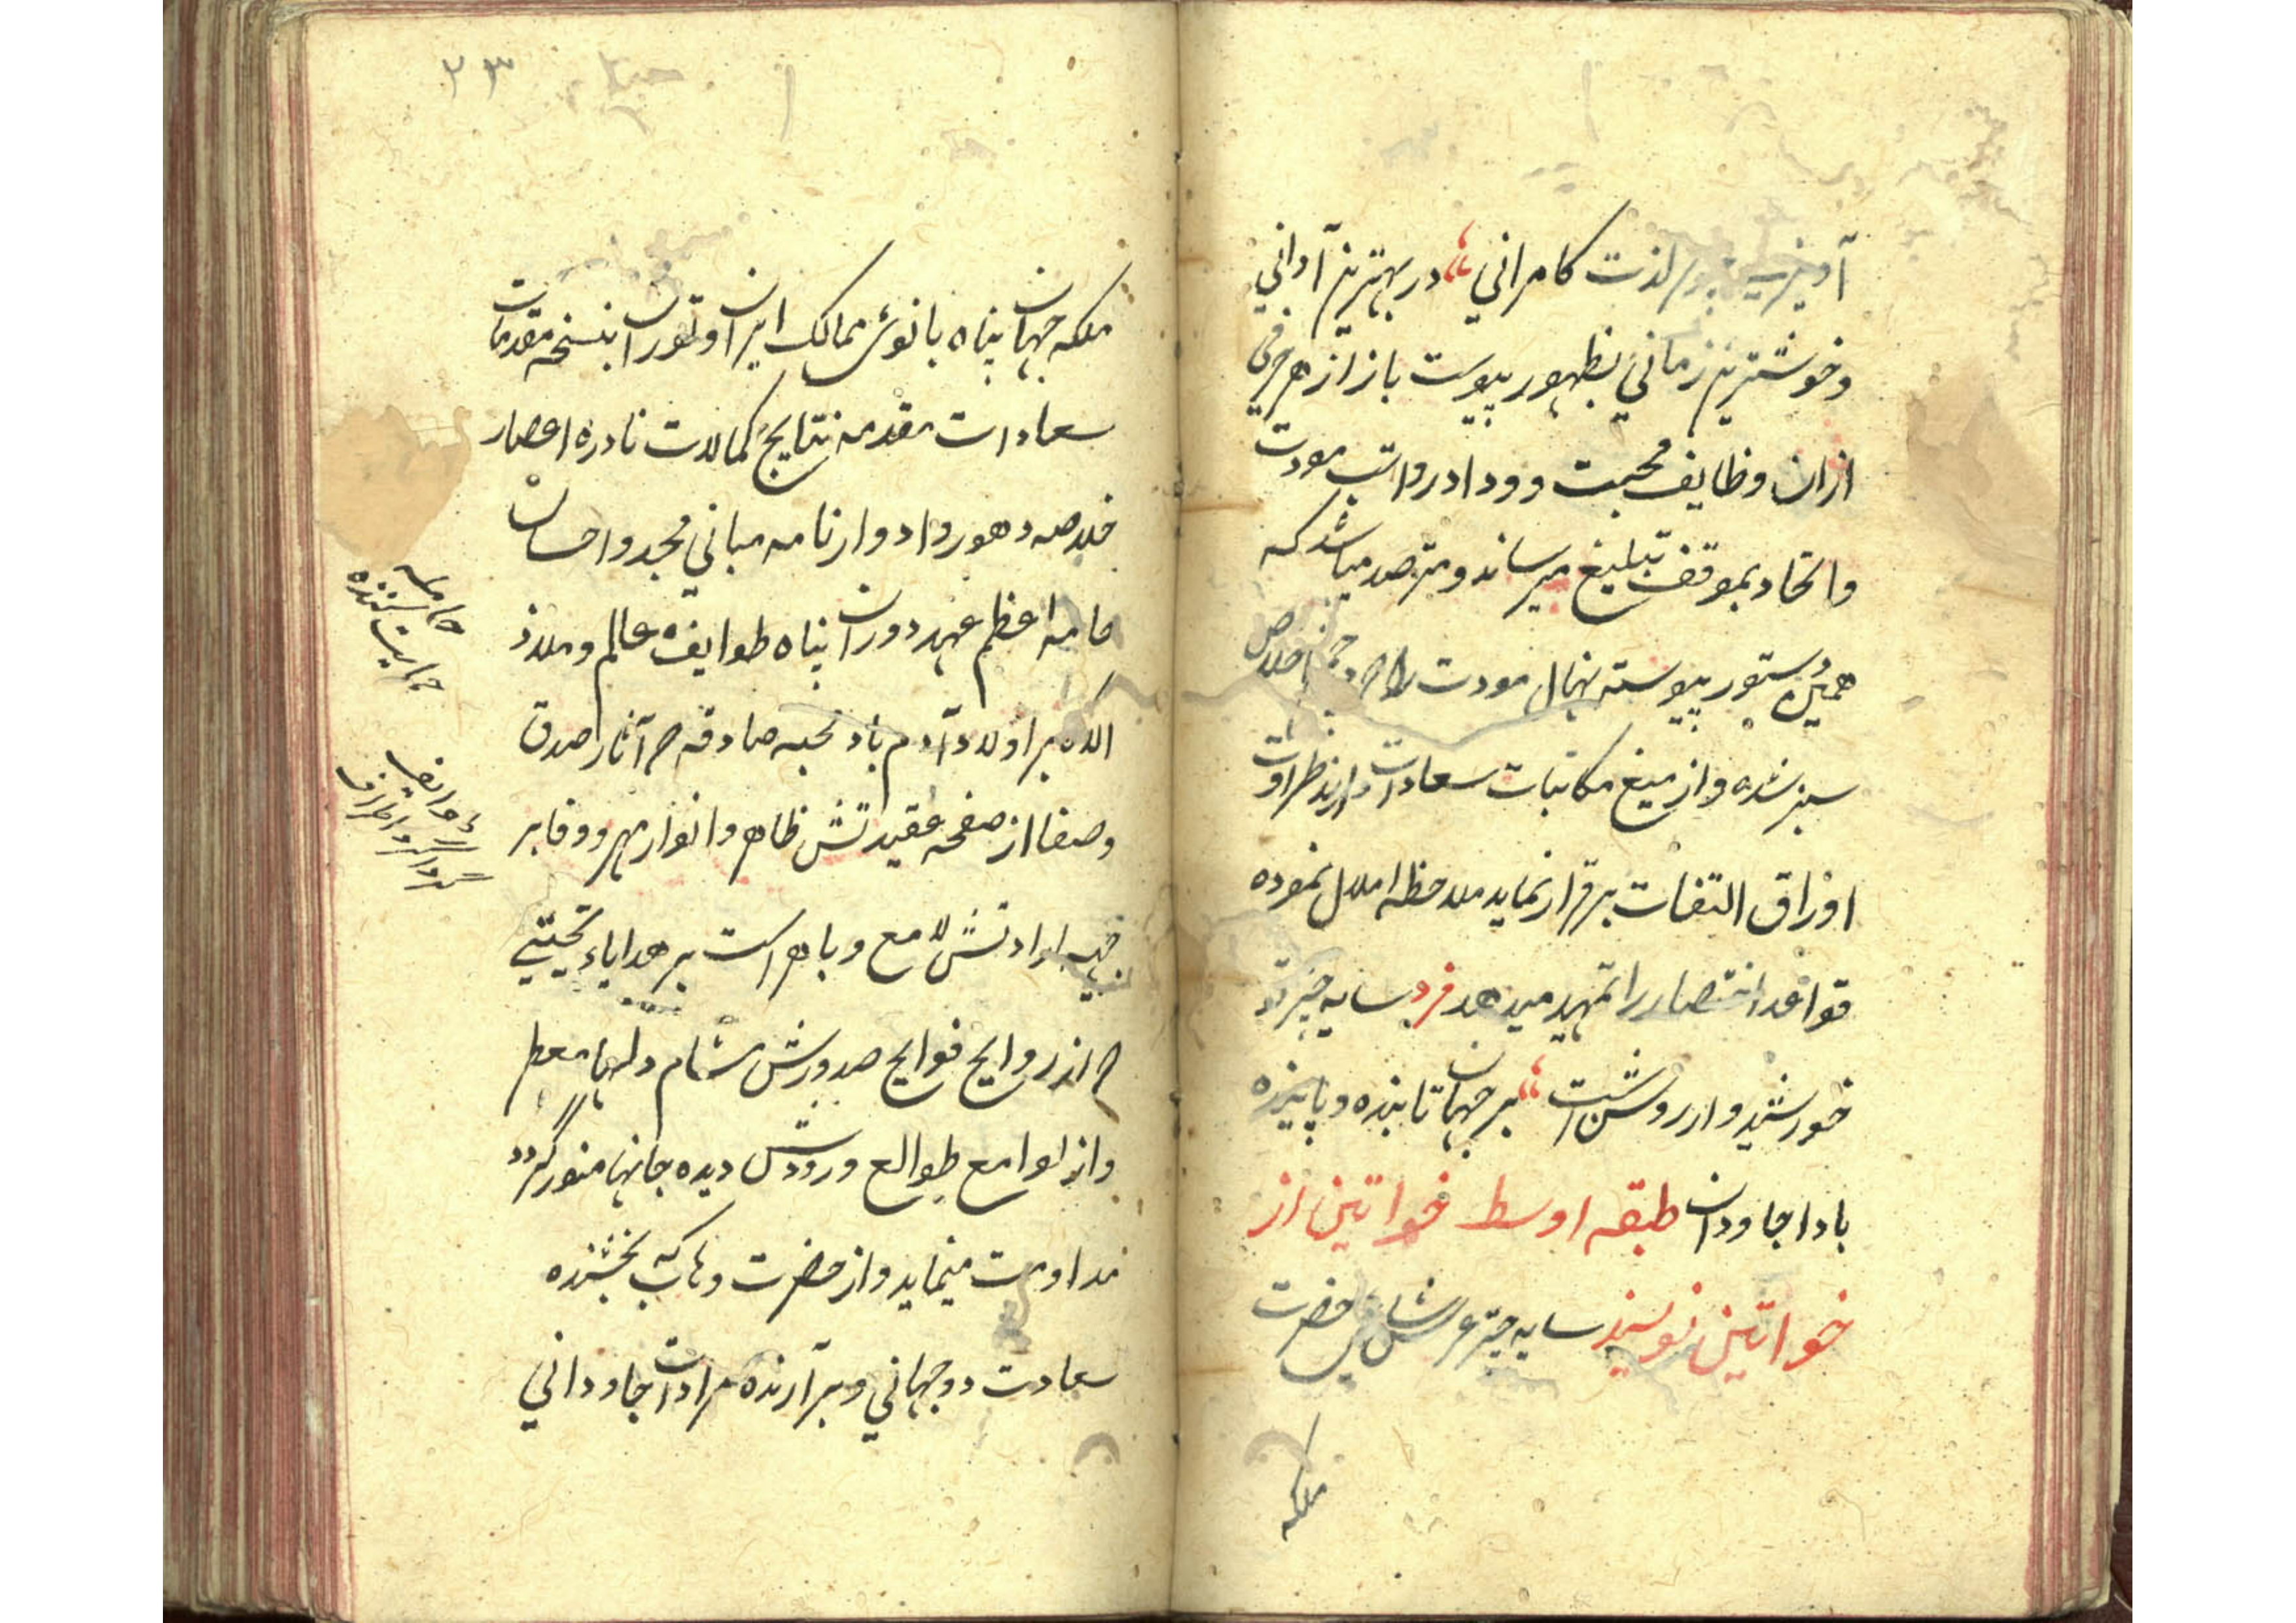 لذت کامرانی در بهترین آوانی
وخوشترین زمانی بظهور پیوست باز از هر حرفی
ازان وظایف محبت ووداد رواتب مودت
واتحاد بموقف تبلیغ میرساند ومترصد میباشد که
همین دستور پیوسته نهال مودت اخلاص
سبز شده واز میغ مکاتبات سعادات طراوت
اوراق التفات برقرار نماید ملاحظه املال نموده
قواعد اختصار را تمهید میدهد فرد سایه چترت
خورشیدوار روشنست بر جهان تابنده وپاینده
بادا جاودان طبقه اوسط خواتین از
خواتین نویسند سایه چتر عرش حضرت
ملکه
۳۳
ملکه جهان پناه بانوی ممالک ایران وتوران نسخه مقدمات
سعادات مقدمه نتایج کمالات نادره اعصار
خلاصه دهور وادوار نامه مبانی مجد واحسان
حامیه اعظم عهد دوران پناه طوایف عالم وملاذ
اولاد آدم باد محبه صادقه که آثار صدق
وصفا از صفحه عقیدتش ظاهر وانوار مهر ووفا بر
ارادتش لامع وباهر است بر هدایاء تحیتی
که از روایح فوایح صدورش مشام دلها معطر
واز لوامع طوالع ورودش دیده جانها منور گردد
مداومت مینماید واز حضرت وهاب که بخشنده
سعادت دوجهانی وبرآرنده مرادات جاودانی
حامیه
حمایت کننده
گرد واطراف